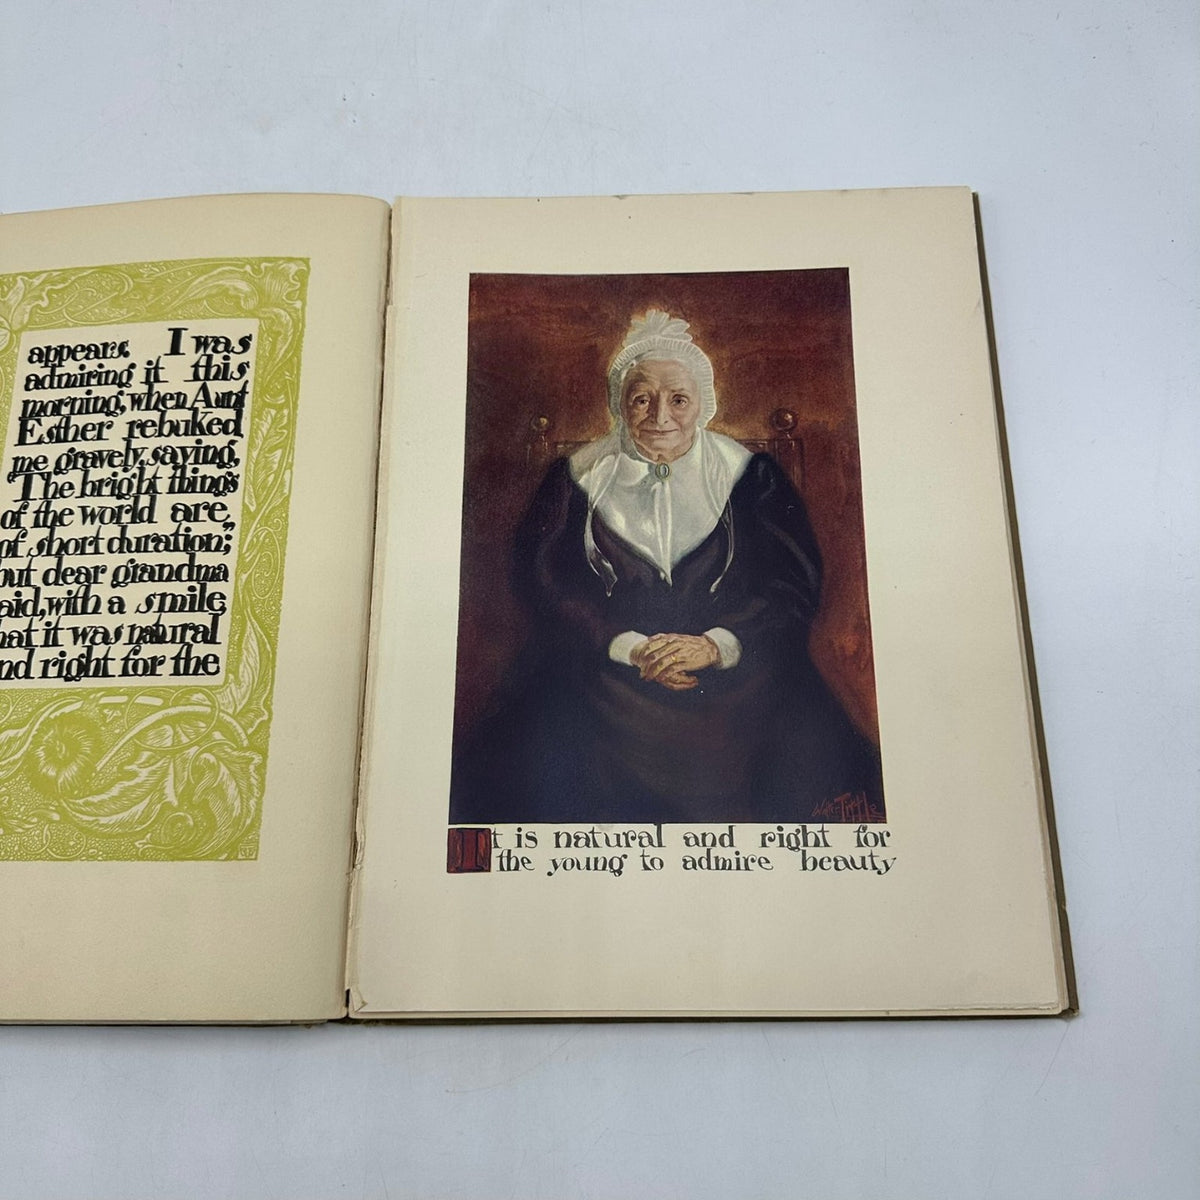 appears. I was
admiring it this
morning, when Aunt
Esther rebuked
me gravely, saying,
"The bright things
of the world are
of short duration;"
but dear grandma
aid, with a smile,
hat it was natural
nd right for the
Walter Tittle
It is natural and right for
the young to admire beauty